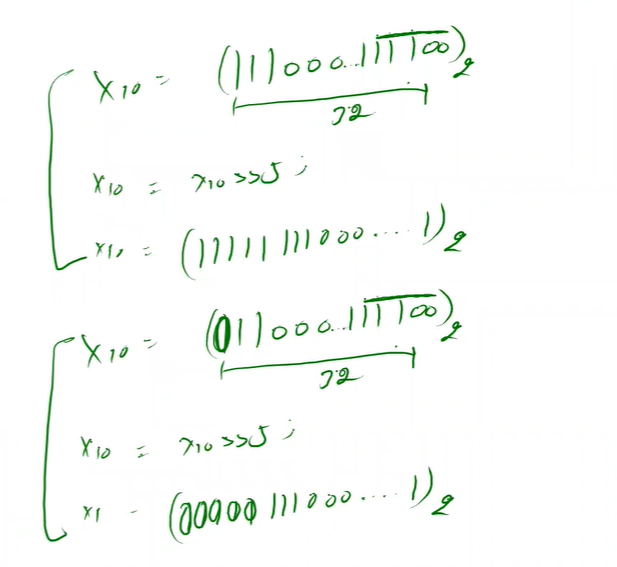 X10 = (111000...1111100)2
32
x10 = x10 >> 5 ;
x1, = (11111 111000.... 1)2
X10 = (011000...1111100)2
32
x10 = x10 >> 5 ;
x1 - (00000 111000.... 1)2